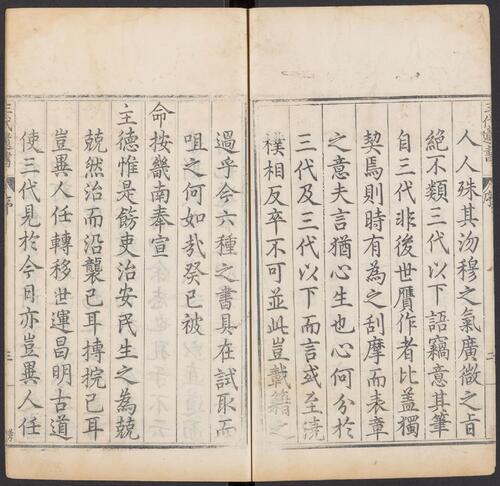 三代遺書
序
人人殊其沕穆之氣廣微之旨
絕不類三代以下語竊意其筆
自三代非後世贗作者比蓋獨
契焉則時有為之刮摩而表章
之意夫言猶心生也心何分於
三代及三代以下而言或至澆
樸相反卒不可並此豈載籍之
過乎今六種之書具在試取而
咀之何如哉癸巳被
命按畿南奉宣
主德惟是飭吏治安民生之為兢
兢然治而沿襲已耳摶捖已耳
豈異人任轉移世運昌明古道
使三代見於今日亦豈異人任
三代遺書
序
三